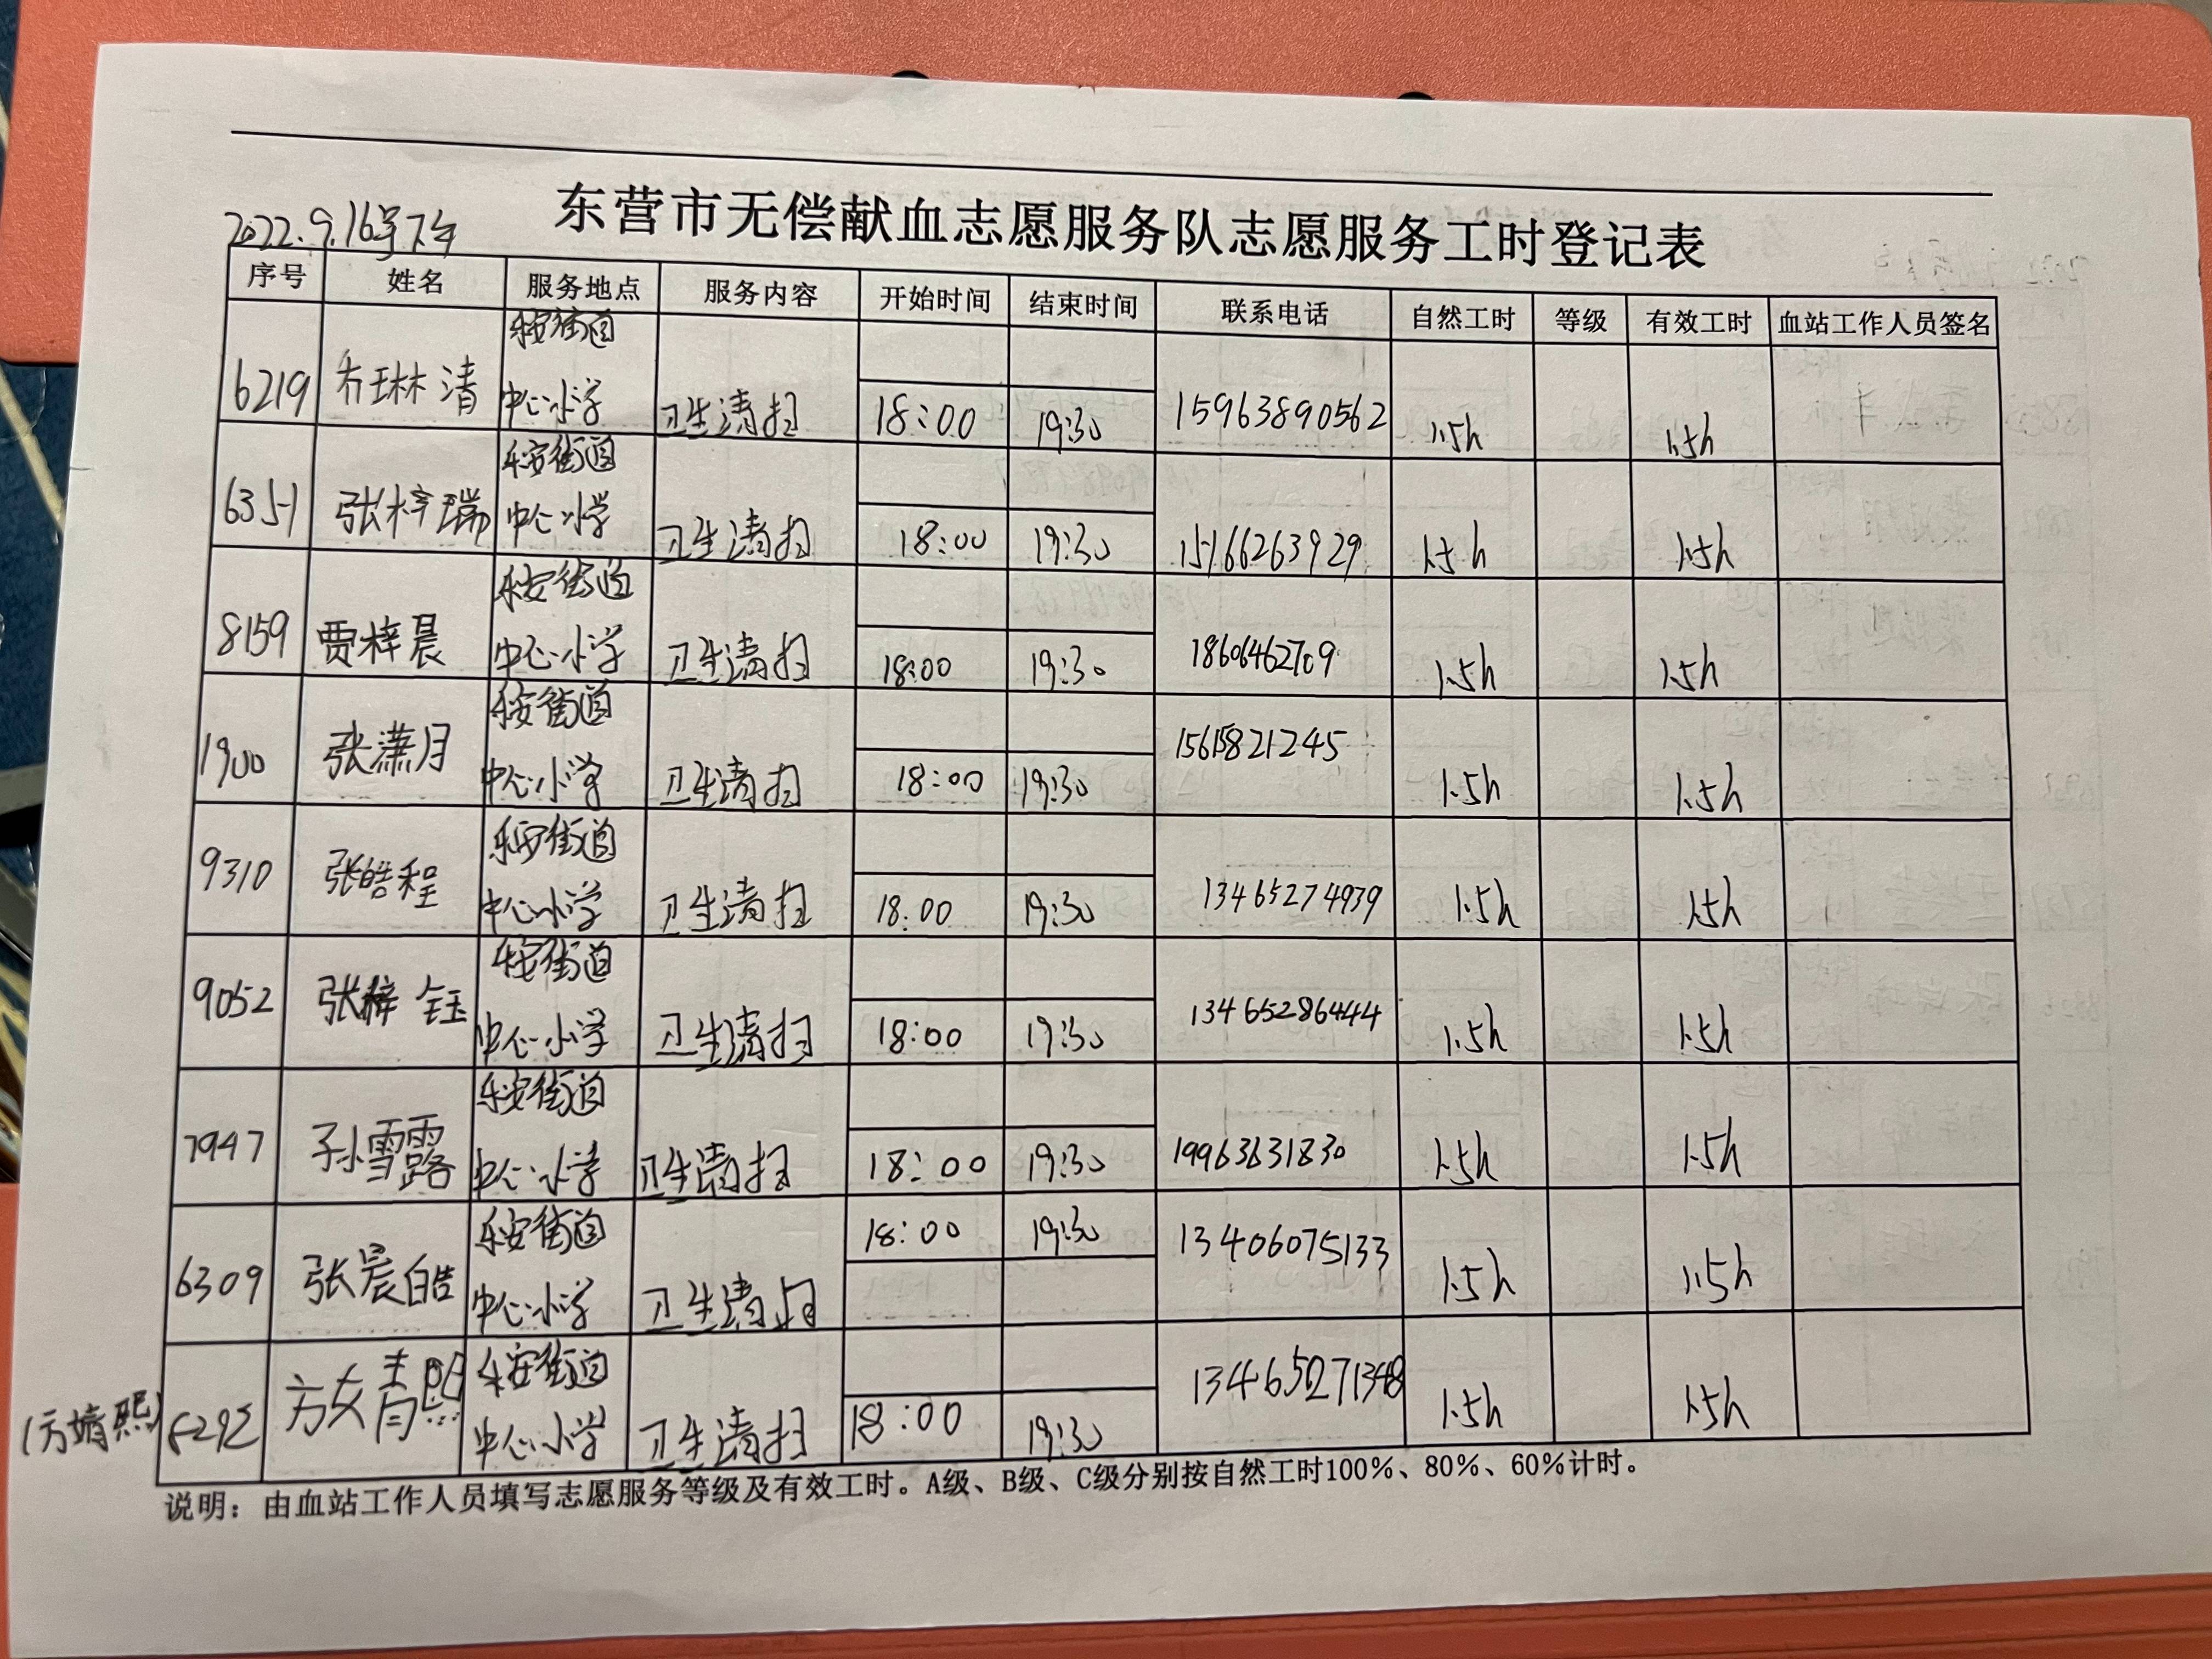 东营市无偿献血志愿服务队志愿服务工时登记表
2022.9.16号下午
序号 姓名 服务地点 服务内容 开始时间 结束时间 联系电话 自然工时 等级 有效工时 血站工作人员签名
乐安街道
6219 乔琳清 中心小学 卫生清扫 18:00 19:30 15963890562 1.5h 1.5h
乐安街道
6351 张梓瑞 中心小学 卫生清扫 18:00 19:30 15166263929 1.5h 1.5h
乐安街道
8159 贾梓晨 中心小学 卫生清扫 18:00 19:30 18606462709 1.5h 1.5h
乐安街道
1900 张潇月 中心小学 卫生清扫 18:00 19:30 15615821245 1.5h 1.5h
乐安街道
9310 张皓程 中心小学 卫生清扫 18:00 19:30 13465274939 1.5h 1.5h
乐安街道
9052 张梓钰 中心小学 卫生清扫 18:00 19:30 13465286444 1.5h 1.5h
乐安街道
7947 孙雪露 中心小学 卫生清扫 18:00 19:30 19963631830 1.5h 1.5h
乐安街道 18:00 19:30
6309 张晨皓 中心小学 卫生清扫 13406075133 1.5h 1.5h
乐安街道
(方婧熙) 方婧熙 中心小学 卫生清扫 18:00 19:30 13465271348 1.5h 1.5h
说明：由血站工作人员填写志愿服务等级及有效工时。A级、B级、C级分别按自然工时100%、80%、60%计时。